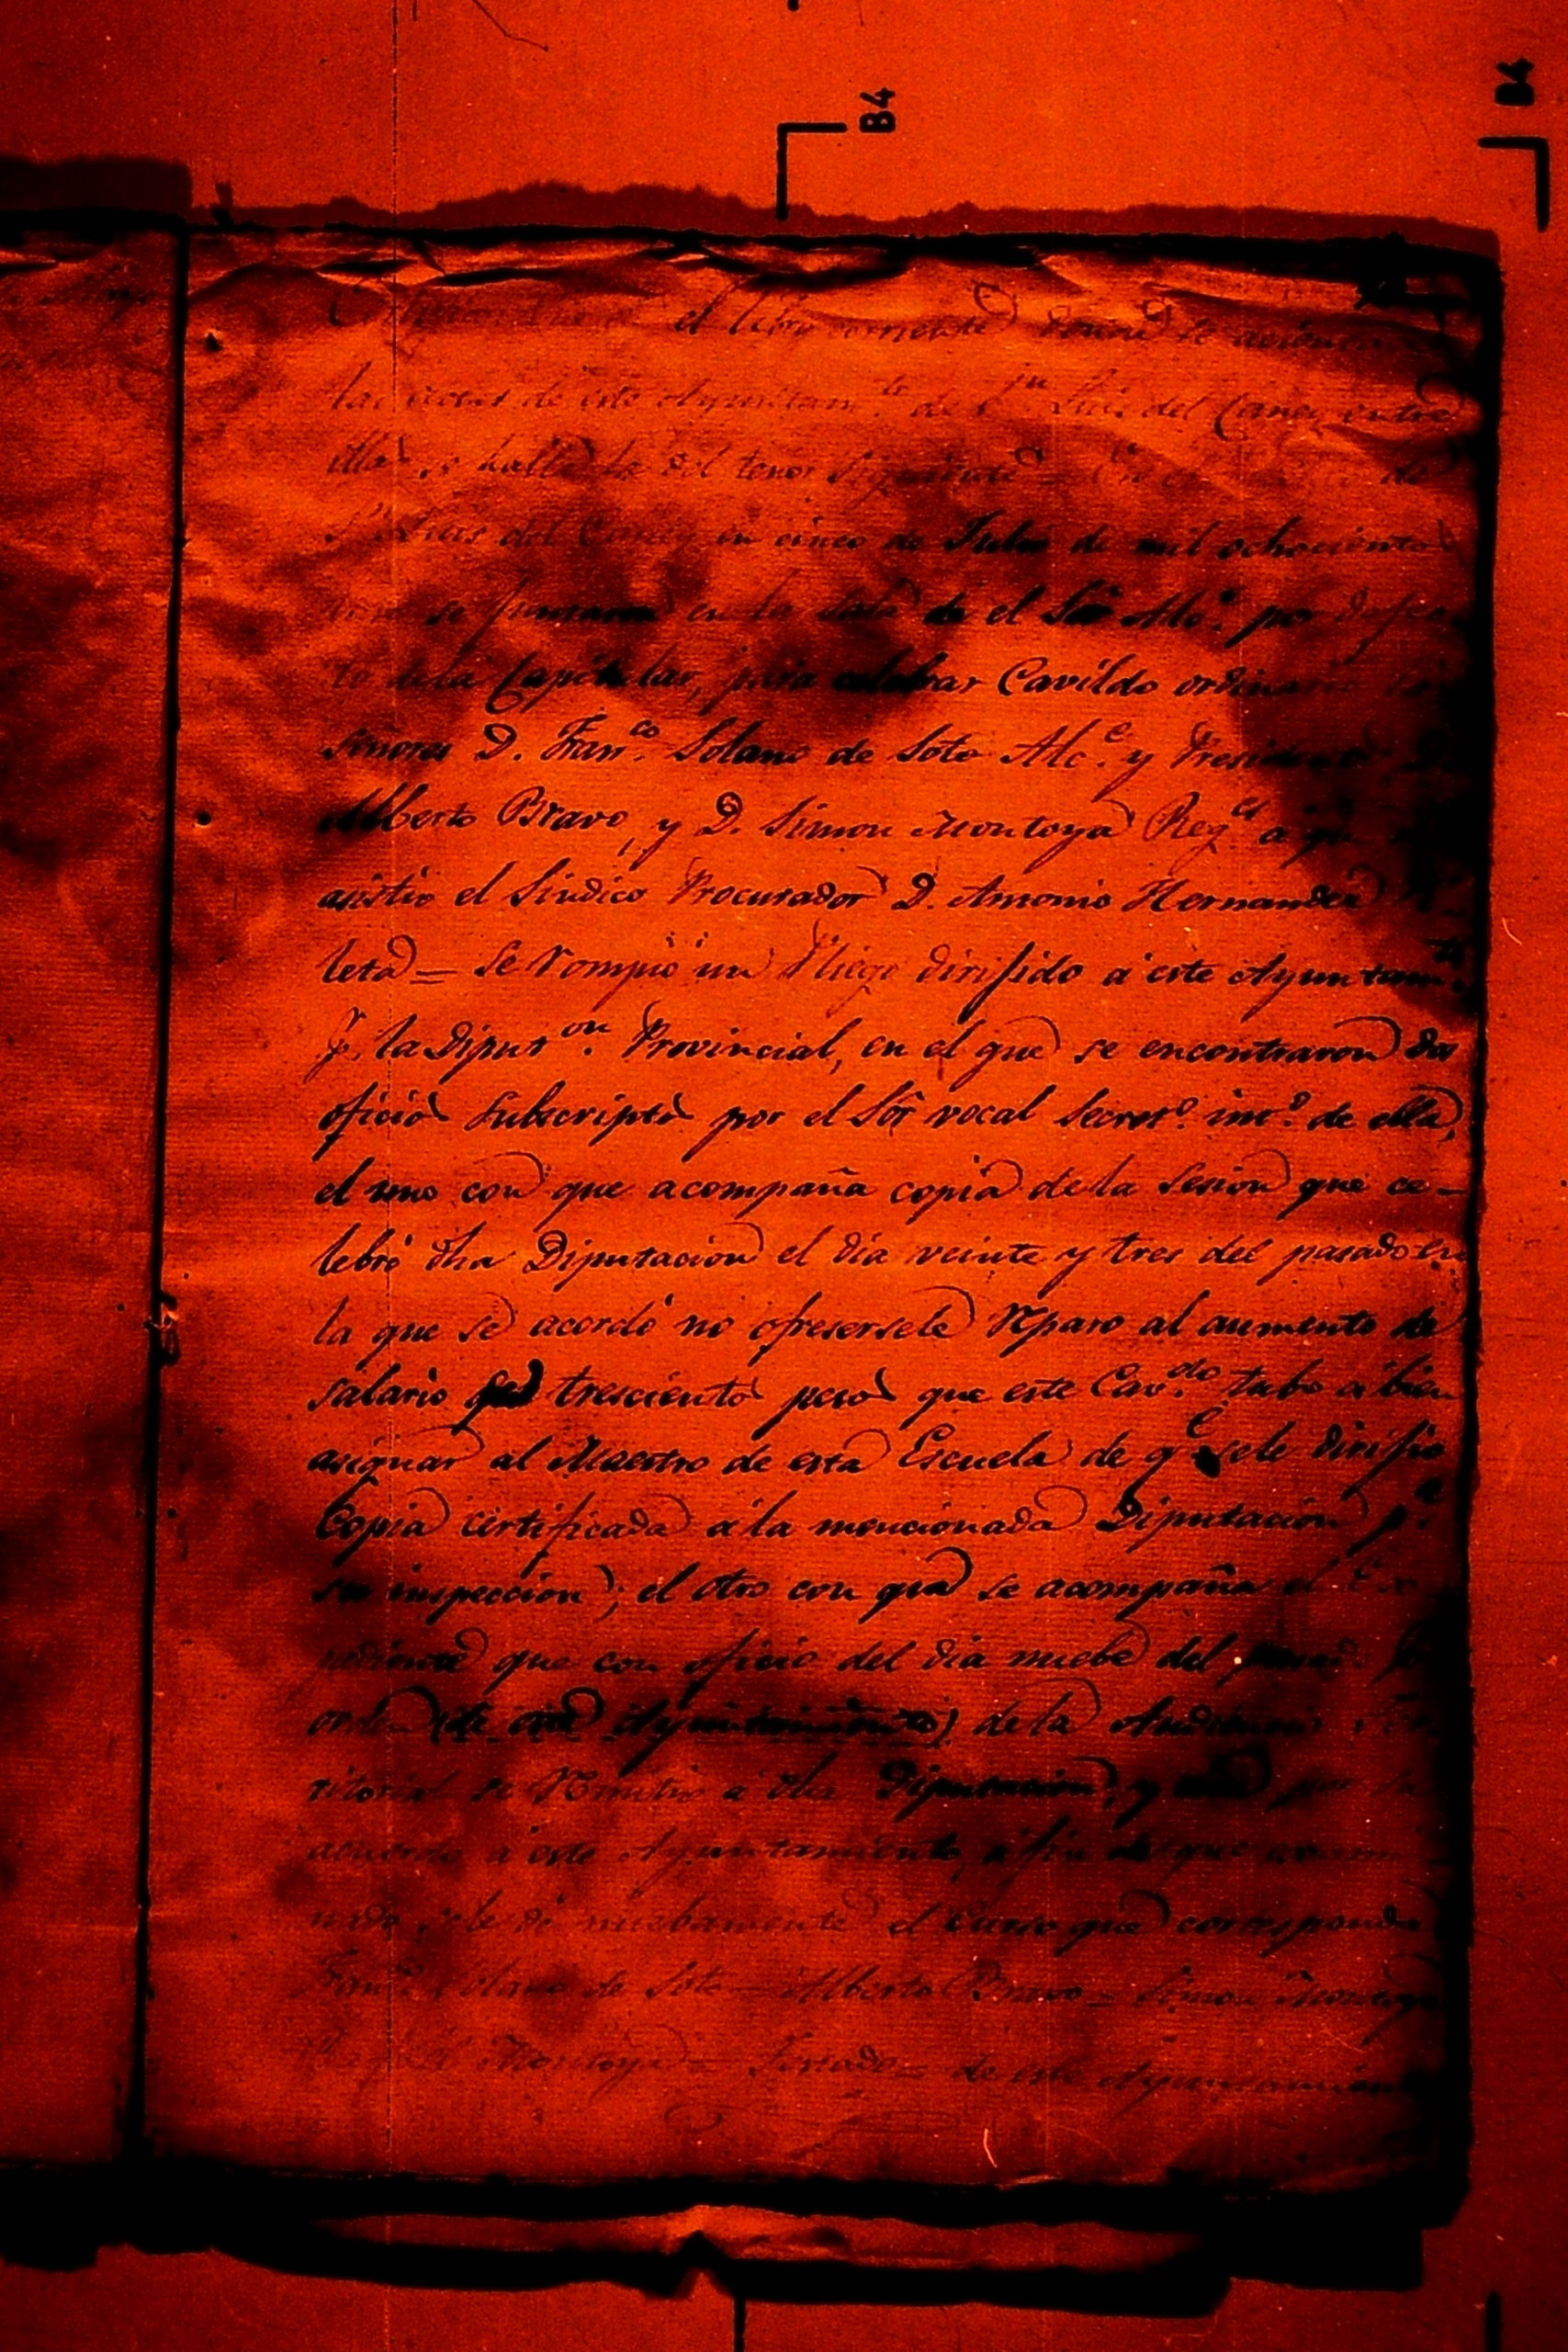 B4
B4
el libro corriente donde se
las actas de este Ayuntam.to de S.n Luis del Caney, entre
ellas se halla la del tenor siguiente = de
S.n Luis del Caney en cinco de Julio de mil ochocientos
se juntaron en la sala de el Sor Alc.e por defec
to dela Capitular, para celebrar Cavildo ordinario
señores D. Fran.co Solano de Soto Alc.e y Presidente
Alberto Bravo, y D. Simon Montoya Reg.es a
asistio el Sindico Procurador D. Antonio Hernandez
leta = Se rompio un Pliego dirijido a este Ayuntam.to
p.r la Diput.on Provincial, en el que se encontraron dos
oficios subscriptos por el Sor vocal Secret.o int.o de ella,
el uno con que acompaña copia de la Sesion que ce-
lebró dha Diputacion el dia veinte y tres del pasado en
la que se acordó no ofresersele reparo al aumento de
salario trescientos pesos que este Cav.do tubo a bien
asignar al Maestro de esta Escuela de q.e sele dirijio
Copia certificada a la mencionada Diputacion p.a
su inspeccion; el otro con que se acompaña el
que con oficio del dia nuebe del
orden (de este Ayuntamiento) de la Audiencia
ritorial se Remitio a dha Diputacion, y
acuerdo a este Ayuntamiento, a fin de que
sele dé nuebamente el curso que corresponde
Fran.co Solano de Soto = Alberto Bravo = Simon Montoya
Montoya = de este Ayuntamiento